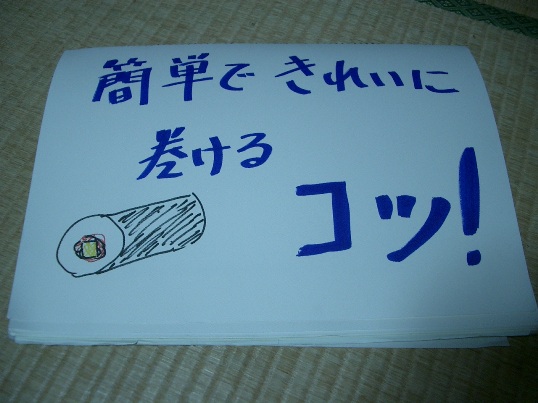 簡単できれいに
巻ける
コツ!